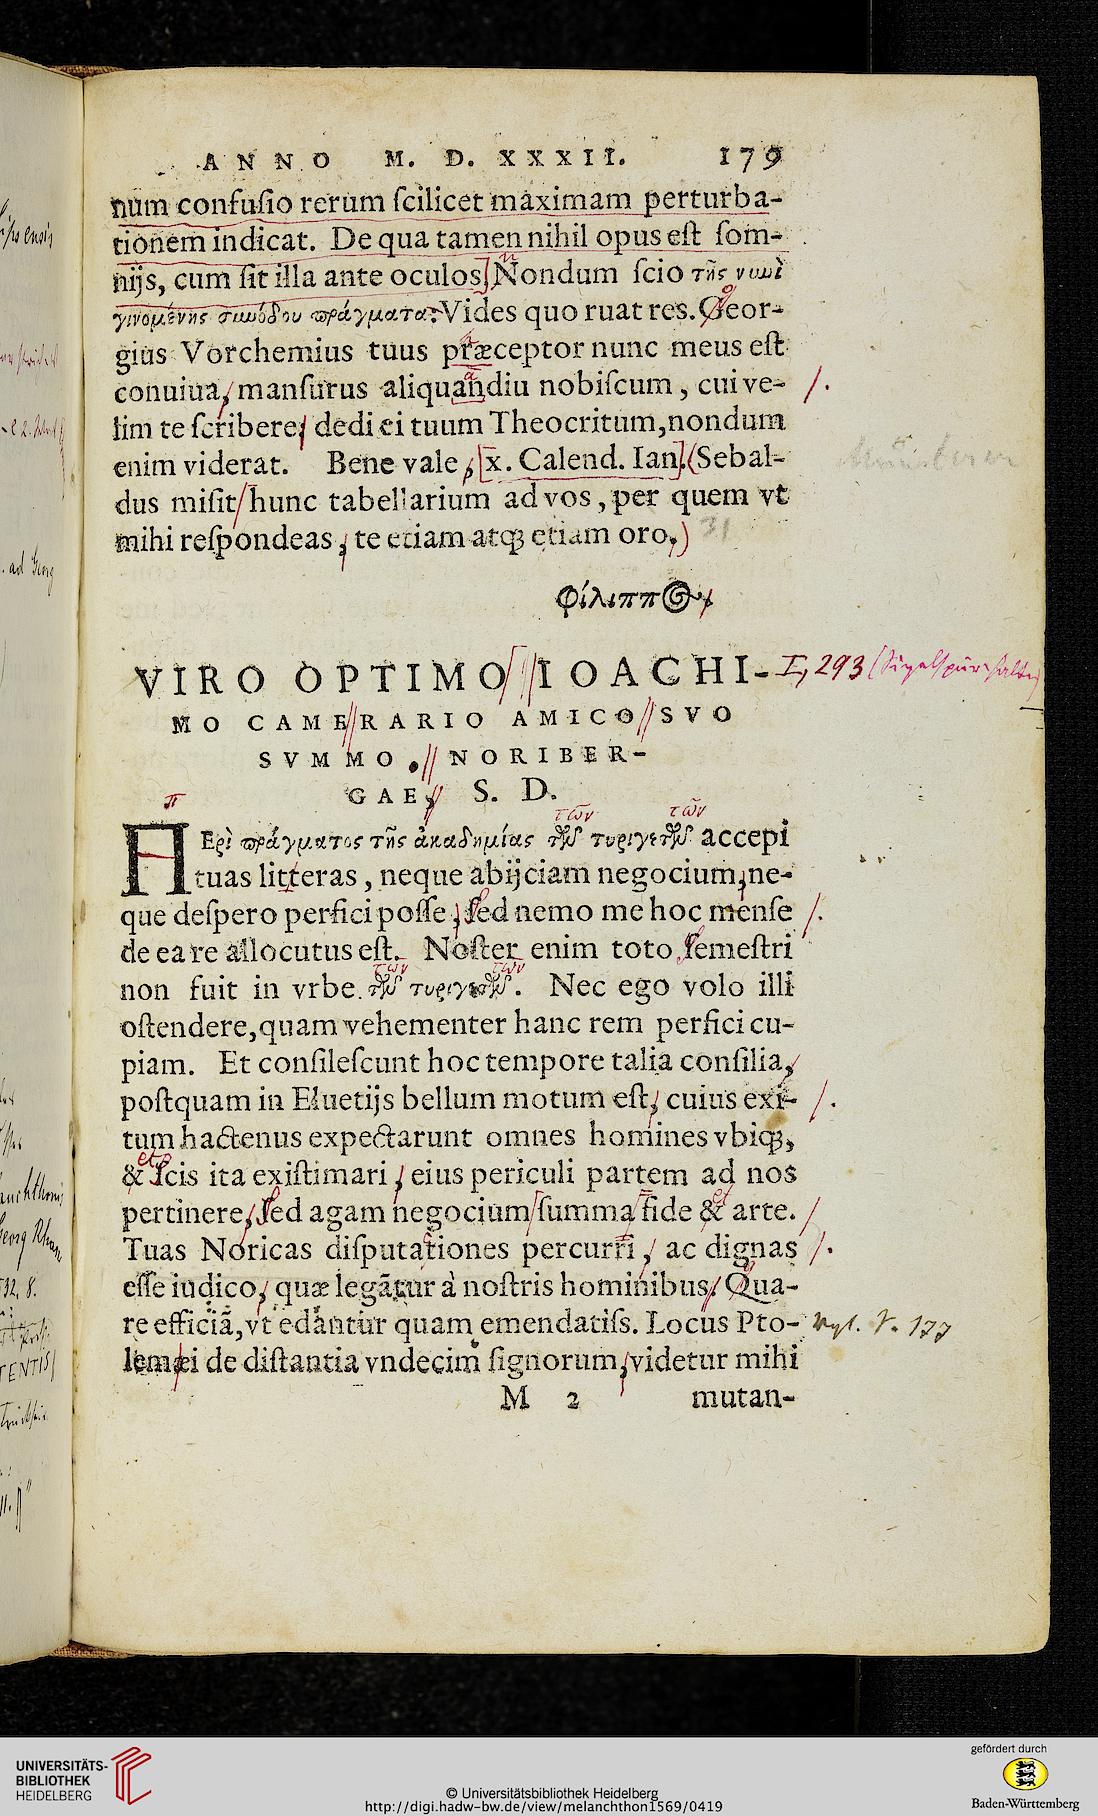 ANNO M. D. XXXII. 179
num confuſio rerum ſcilicet maximam perturba-
tionem indicat. De qua tamen nihil opus eſt ſom-
nijs, cum ſit illa ante oculos] Nondum ſcio τῆς νυνὶ
γινομένης συνόδου πράγματα: Vides quo ruat res. Geor-
gius Vorchemius tuus præceptor nunc meus eſt
conuiua, manſurus aliquandiu nobiſcum, cui ve-
lim te ſcribere: dedi ei tuum Theocritum, nondum
enim viderat. Bene vale, [x. Calend. Ian]. (Sebal-
dus miſit hunc tabellarium ad vos, per quem vt
mihi reſpondeas, te etiam atq; etiam oro.) 31
Φίλιππος
VIRO OPTIMO IOACHI- I, 293
MO CAMERARIO AMICO SVO
SVMMO. NORIBER-
GAE, S. D.
π των των
ΠΕρὶ πράγματος τῆς ἀκαδημίας τῶν τυριγετῶν accepi
tuas litteras, neque abijciam negocium, ne-
que deſpero perfici poſſe, ſed nemo me hoc menſe
de ea re allocutus eſt. Noſter enim toto ſemeſtri
των των
non fuit in vrbe τῶν τυριγετῶν. Nec ego volo illi
oſtendere, quam vehementer hanc rem perfici cu-
piam. Et conſileſcunt hoc tempore talia conſilia,
poſtquam in Eluetijs bellum motum eſt, cuius exi-
tum hactenus expectarunt omnes homines vbiq;,
& ſcis ita exiſtimari, eius periculi partem ad nos
pertinere, ſed agam negocium ſumma fide & arte.
Tuas Noricas diſputationes percurri, ac dignas
eſſe iudico, quæ legãtur à noſtris hominibus. Qua-
re efficiã, vt edantur quam emendatiſs. Locus Pto- vgl. S. 177
lemæi de diſtantia vndecim ſignorum, videtur mihi
M 2 mutan-
UNIVERSITÄTS-
BIBLIOTHEK
HEIDELBERG
© Universitätsbibliothek Heidelberg
http://digi.hadw-bw.de/view/melanchthon1569/0419
gefördert durch
Baden-Württemberg